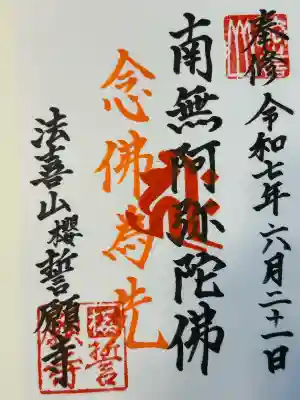 奉修 令和七年六月二十一日
南無阿弥陀佛
念佛為先
法喜山櫻誓願寺